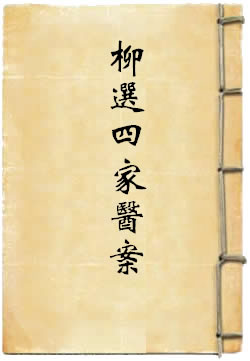 柳選四家醫案